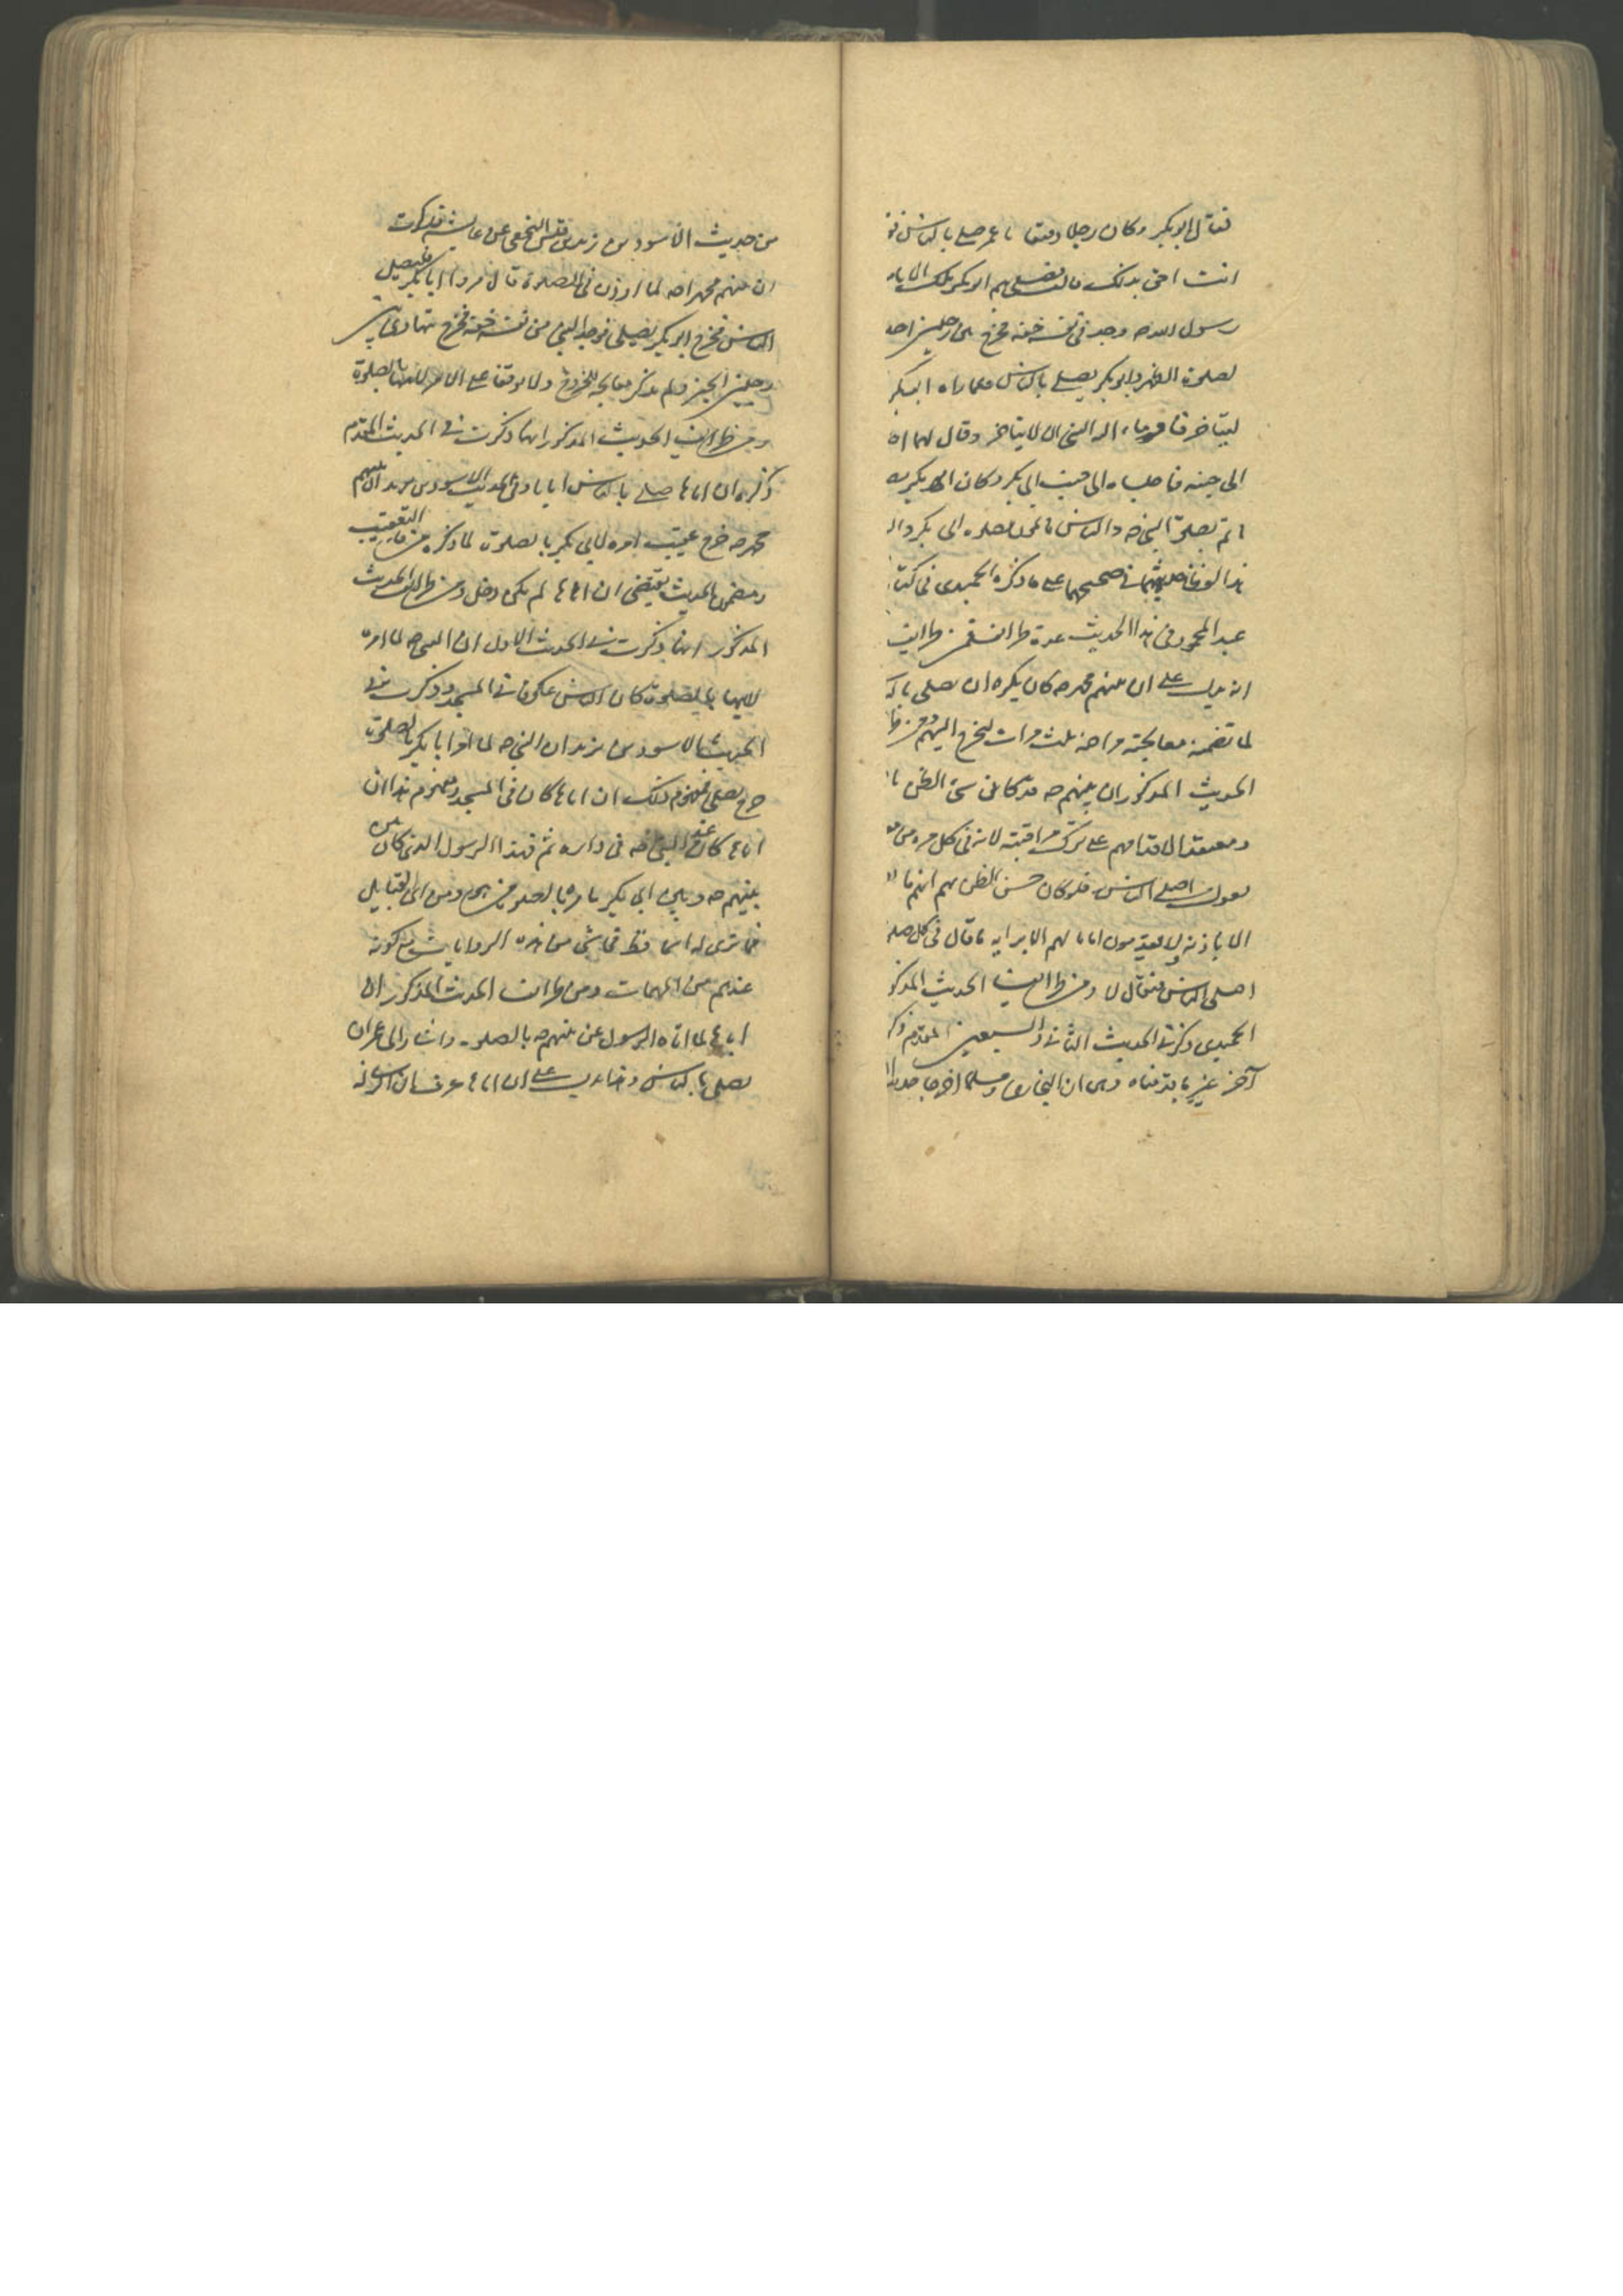 فقال ابو بكر وكان رجلا رقيقا يا عمر صل بالناس فق
انت احق بذلك قالت فصلى بهم ابو بكر تلك الايام
رسول الله ص وجد في نفسه خفة فخرج بين رجلين احد
لصلوة الظهر وابو بكر يصلي بالناس فلما راه ابو بكر
ليتأخر فاومأ اليه النبي ان لا يتاخر وقال لهما ا
الى جنبه فاجلساه الى جنب ابي بكر وكان ابو بكر
بصلوة النبي ص والناس بصلوة ابي بكر وال
هذا في صحيحهما على ما ذكره الحميدي في كتا
عبد المحمود في هذا الحديث عدة طرائف فمن طرائف
انه يدل على ان نبيهم محمد ص كان يكره ان يصلي بال
لما تضمنه معالجته مراجعة ثلث مرات ليخرج اليهم ومن
الحديث المذكور ان نبيهم ص قد كان سيئ الظن با
ومعتقدا لاقدامهم على ترك مراقبته لانه في كل مرة
يقول اصلى الناس فلو كان حسن الظن بهم انهم
الا باذنه ولا يقدمون اماما لهم الا برايه ما قال في كل
اصلى الناس فيقال لا ومن طرائف الحديث المذكو
الحميدي ذكر في الحديث الثاني والسبعين المقدم ذكر
آخر غير ما قدمناه وهي ان البخاري ومسلما اخرجا
من حديث الاسود بن زيد بن قيس النخعي عن عايشه قد ذكرت
ان نبيهم محمدا ص لما اوذن في الصلوة قال مروا ابا بكر فليصل
الناس فخرج ابو بكر يصلي فوجد النبي من نفسه خفة فخرج يتهادى بين
رجلين الخبر ولم يذكر معالجة للخروج ولا توقفا على الامر بالصلوة
ومن طرائف الحديث المذكور انها ذكرت في الحديث المقدم
ذكره ان اباها صلى بالناس اياما وفي الحديث الاسود بن يزيد ان نبيهم
محمد ص خرج عقيب امره لابي بكر بالصلوة لما ذكره من فاء التعقيب
ومضمون الحديث يقتضي ان اباها لم يكن دخل ومن طرائف الحديث
المذكور انها ذكرت في الحديث الاول ان النبي ص لما امره
بالصلوة كان الناس عكوفا في المسجد وذكرت في
الحديث الاسود بن يزيد ان النبي ص لما امر ابا بكر بالصلوة
خرج يصلي فمفهوم ذلك ان اباها كان في المسجد ومفهوم هذا ان
اباها كان عند النبي ص في داره ثم فهذا الرسول الذي كان بين
نبيهم ص وبين ابي بكر يامره بالصلوة من هو ومن اي القبايل
فما ترى له اسما قط في شي من هذه الروايات مع كونه
عندهم من المهمات ومن طرائف الحديث المذكور ان
اباها لما اتاه الرسول عن نبيهم ص بالصلوة واشار الى عمر ان
يصلي بالناس وهذا يدل على ان اباها عرف ان